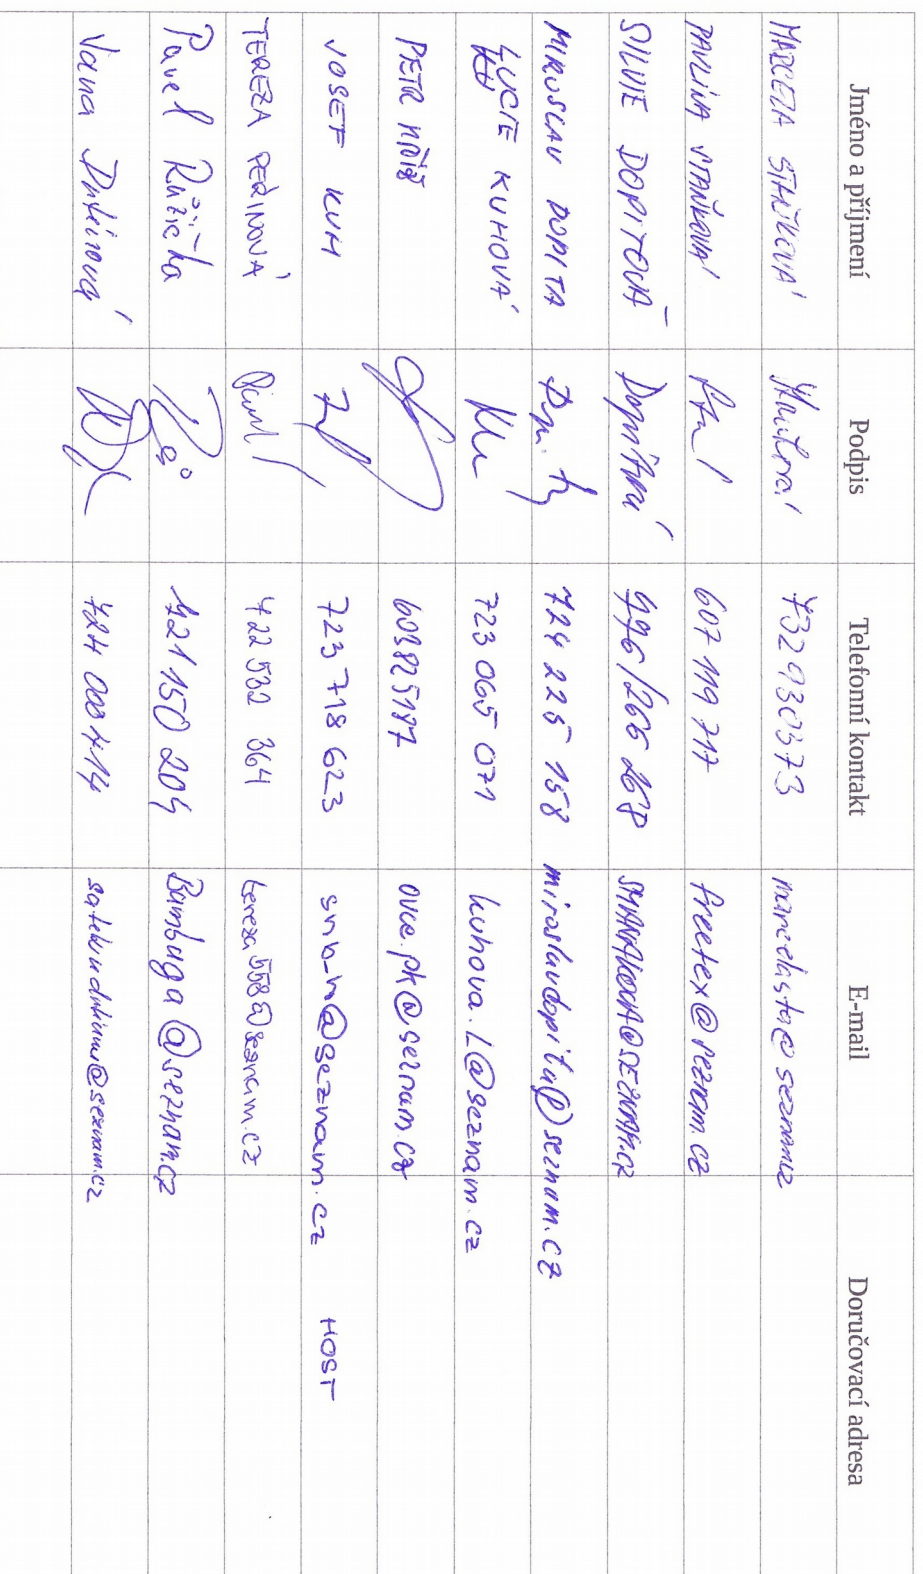 Jméno a příjmení Podpis Telefonní kontakt E-mail Doručovací adresa
MARCELA STAŇKOVÁ 732930373 marcelasta@seznam.cz
PAVLÍNA STAŇKOVÁ 607 119 717 freetex@seznam.cz
SILVIE DOPITOVÁ
MIROSLAV DOPITA 724 225 158 miroslavdopita@seznam.cz
LUCIE KUHOVÁ 723 065 071 kuhova.L@seznam.cz
PETR 603825197 ovce.pk@seznam.cz
JOSEF KUH 723 718 623 snb-m@seznam.cz HOST
TEREZA PEŘINOVÁ 722 532 364 tereza558@seznam.cz
Pavel Růžička 721 150 204 Bambuga@seznam.cz
Jana